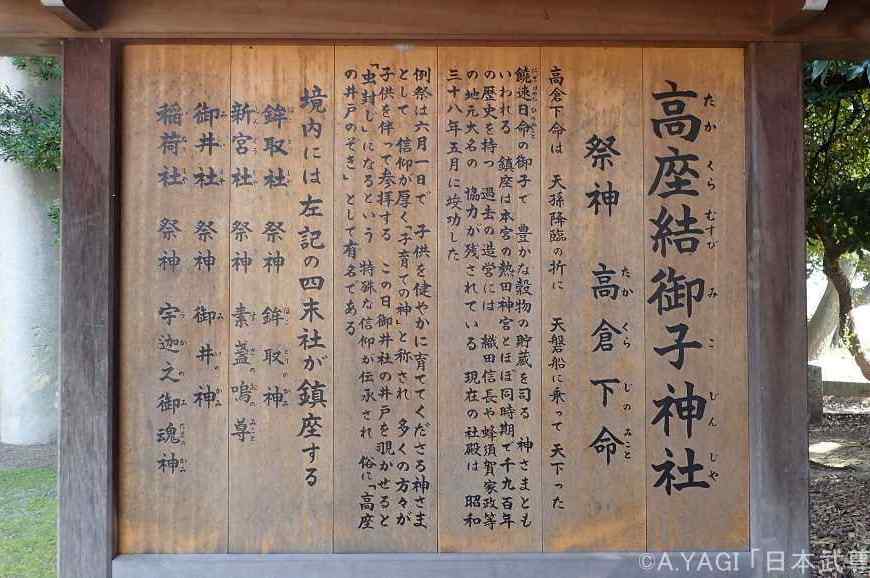 高座結御子神社
たか くら むすび み こ じん じゃ
祭神 高倉下命
たか くら じの みこと
高倉下命は 天孫降臨の折に 天磐船に乗って 天下った
饒速日命の御子で 豊かな穀物の貯蔵を司る 神さまとも
いわれる 鎮座は本宮の熱田神宮とほぼ同時期で千九百年
の歴史を持つ 過去の造営には 織田信長や蜂須賀家政等
の地元大名の 協力が残されている 現在の社殿は 昭和
三十八年五月に竣功した
例祭は六月一日で 子供を健やかに育ててくださる神さま
として 信仰が厚く「子育ての神」と称され 多くの方々が
子供を伴って参拝する この日御井社の井戸を覗かせると
「虫封じ」になるという 特殊な信仰が伝承され 俗に「高座
の井戸のぞき」として有名である
境内には左記の四末社が鎮座する
鉾取社 祭神 鉾取神
新宮社 祭神 素盞嗚尊
御井社 祭神 御井神
稲荷社 祭神 宇迦之御魂神
©A.YAGI「日本武尊